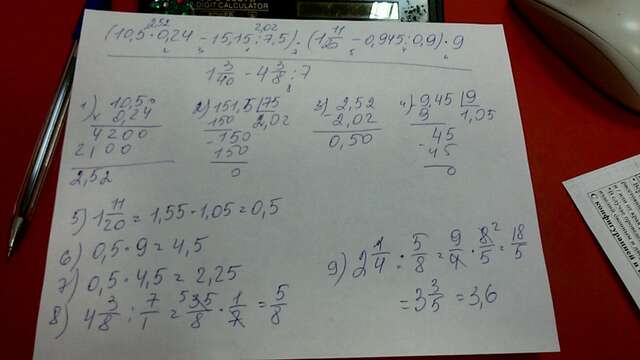 DIGIT CALCULATOR
2,52 2,02
(10,5 · 0,24 - 15,15 : 7,5) · (1 11/20 - 0,945 : 0,9) · 9
1 3/40 - 4 3/8 : 7
1) 10,50
× 0,24
4200
2100
2,52
2) 151,5 | 75
150 2,02
-150
150
0
3) - 2,52
2,02
0,50
4) - 9,45 | 9
9 1,05
- 45
45
0
5) 1 11/20 = 1,55 - 1,05 = 0,5
6) 0,5 · 9 = 4,5
7) 0,5 · 4,5 = 2,25
8) 4 3/8 : 7/1 = 5 35/8 · 1/7 = 5/8
9) 2 1/4 : 5/8 = 9/4 · 8²/5 = 18/5
= 3 3/5 = 3,6